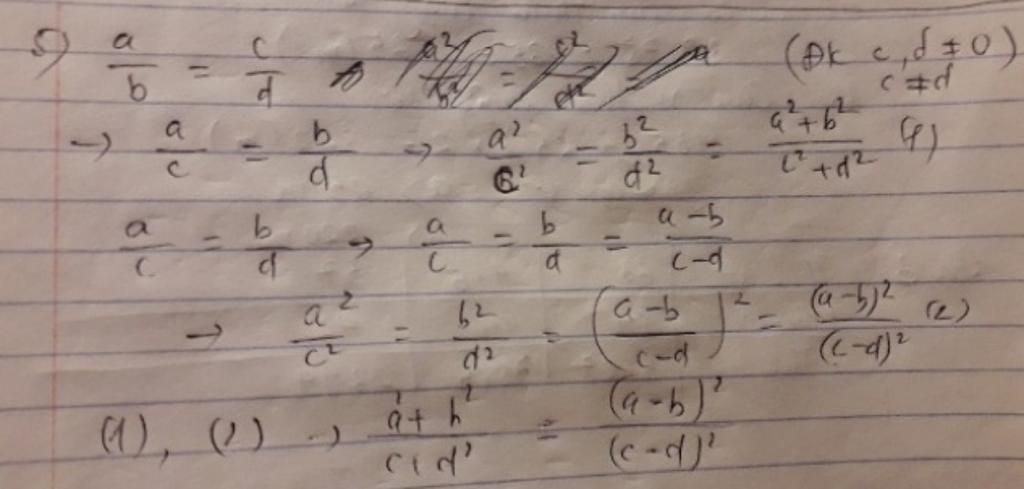 5) a/b = c/d (ĐK c, d ≠ 0) c ≠ d
→ a/c = b/d → a²/c² = b²/d² = (a²+b²)/(c²+d²) (1)
a/c = b/d → a/c = b/d = (a-b)/(c-d)
→ a²/c² = b²/d² = ((a-b)/(c-d))² = (a-b)²/(c-d)² (2)
(1), (2) → (a²+b²)/(c²+d²) = (a-b)²/(c-d)²